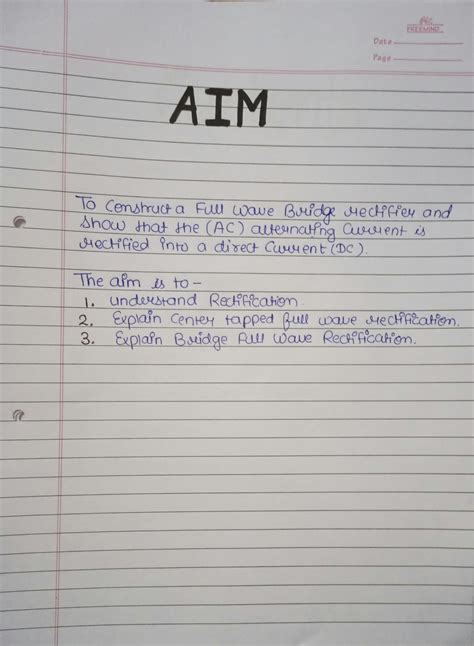 FREEMIND
Date
Page
AIM
To Construct a Full Wave Bridge rectifier and
show that the (AC) alternating Current is
rectified into a direct Current (DC).
The aim is to -
1. understand Rectification.
2. Explain Center tapped full wave rectification.
3. Explain Bridge Full Wave Rectification.